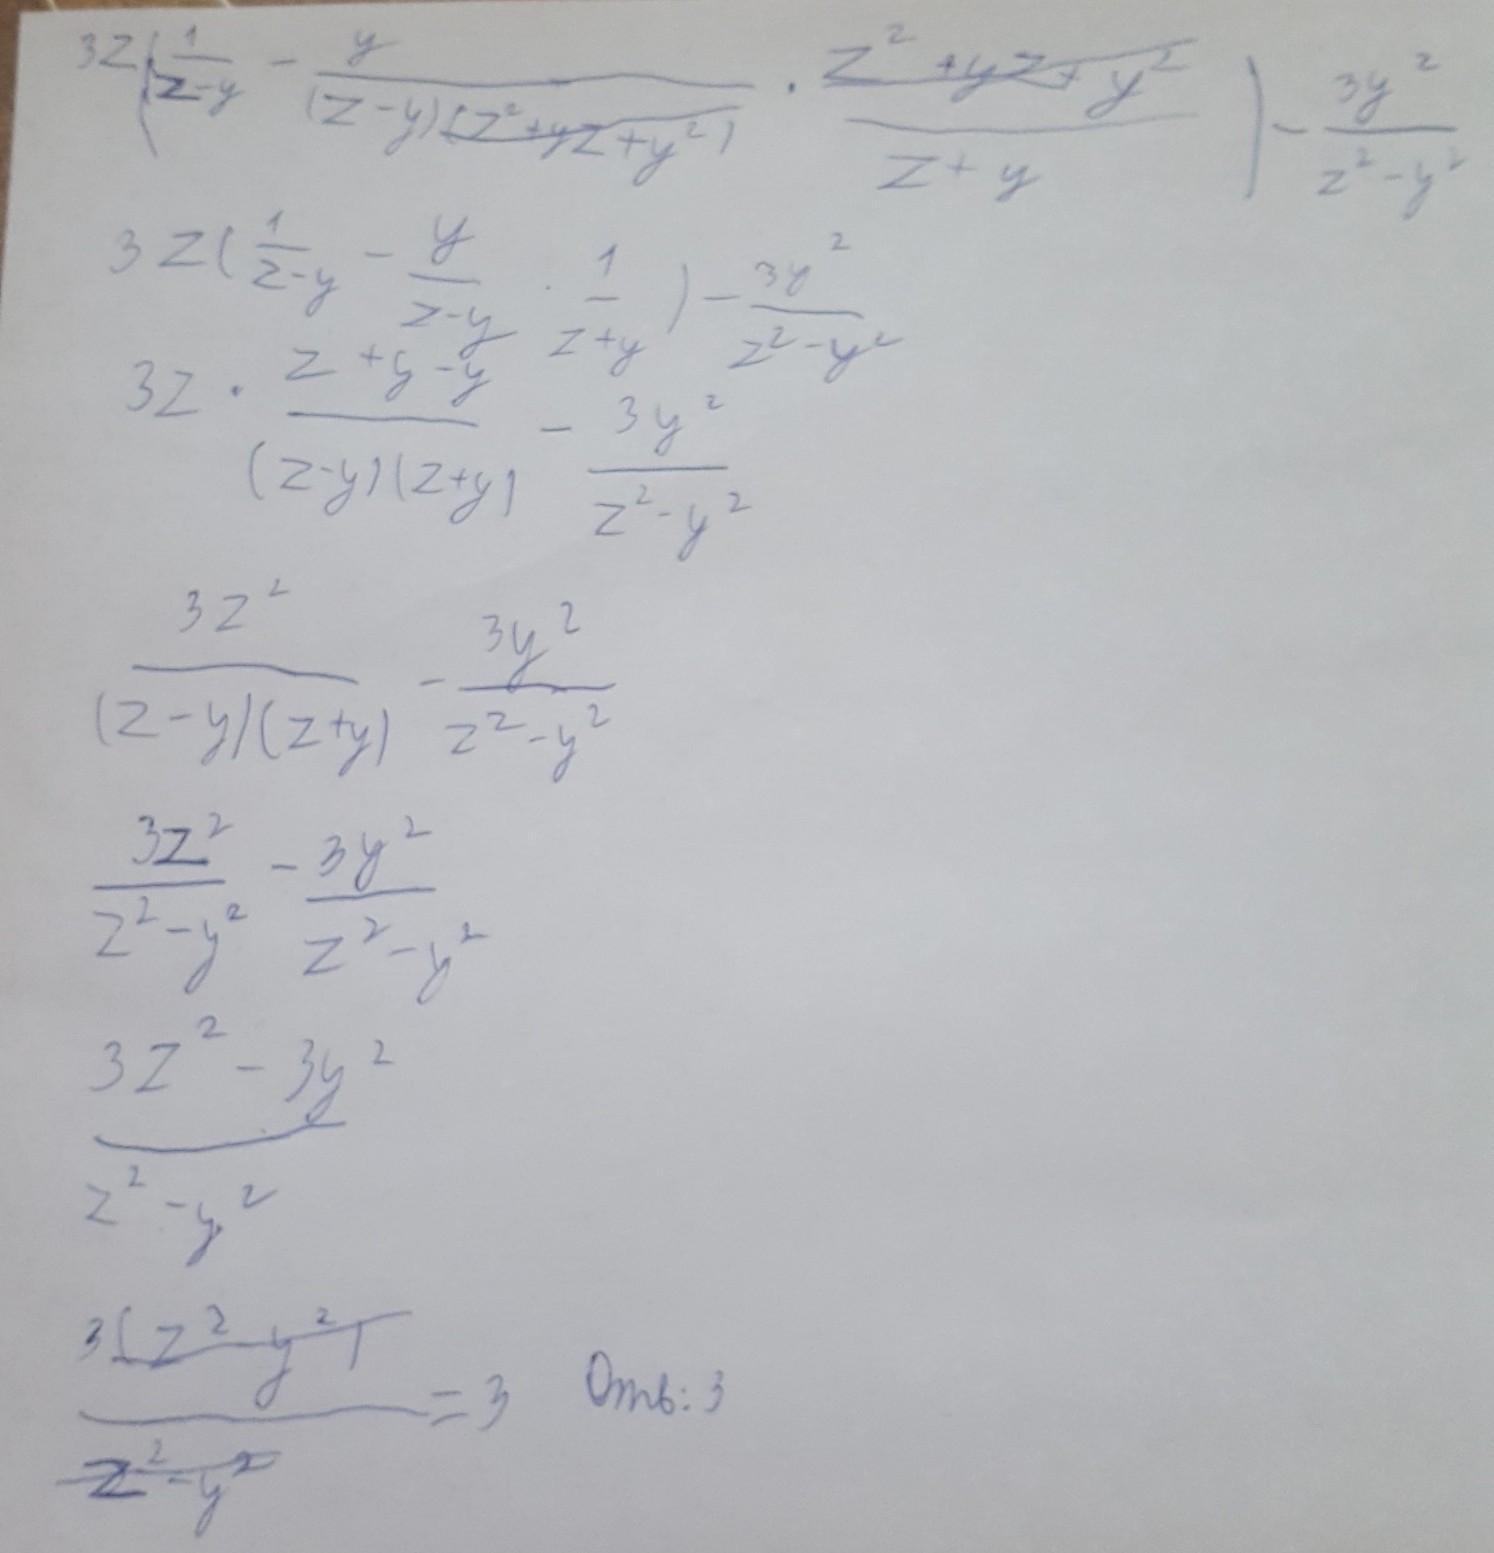 3z(1/(z-y) - y/((z-y)(z²+yz+y²)) · (z²+yz+y²)/(z+y)) - 3y²/(z²-y²)
3z(1/(z-y) - y/(z-y) · 1/(z+y)) - 3y²/(z²-y²)
3z · (z+y-y)/((z-y)(z+y)) - 3y²/(z²-y²)
3z²/((z-y)(z+y)) - 3y²/(z²-y²)
3z²/(z²-y²) - 3y²/(z²-y²)
(3z²-3y²)/(z²-y²)
3(z²-y²)/(z²-y²) = 3 Отв: 3